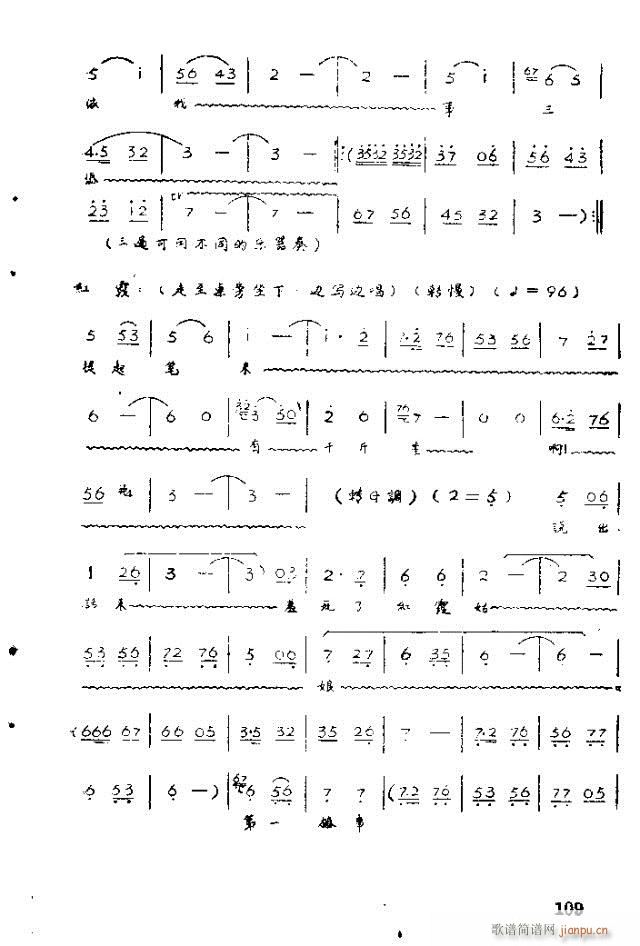 5 i | 56 43 | 2 — | 2 — | 5 i | 67 6 5
依 我 事 三
4·5 32 | 3 — | 3 — |: (3532 3532 | 37 06 | 56 43
23 12 | 7 — | 7 — | 67 56 | 45 32 | 3 —) :|
(三遍可用不同的乐器奏)
红 霞：(走至桌旁坐下·边写边唱)(转慢)(♩=96)
5 53 | 5 6 | i — | i· 2 | 7·2 76 | 53 56 | 7 27
提起 笔 来
6 — | 6 0 | 32 3 50 | 2 6 | 76 7 — | 0 0 | 6·2 76
有 千斤 重 啊!
56 | 3 — | 3 — (转中调)(2=5) 5 06
说出
1 26 | 3 — | 3) 03 | 2· 7 | 6 6 | 2 — | 2 30
话来 羞死了红霞姑
53 56 | 72 76 | 5 06 | 7 27 | 6 35 | 6 — | 6 —
娘
(666 67 | 66 05 | 3·5 32 | 35 26 | 7 — | 7·2 76 | 56 77
6 53 | 6 —) | 67 6 56 | 7 7 | (72 76 | 53 56 | 77 05
第一 件事
109
歌谱简谱网 jianpu.cn